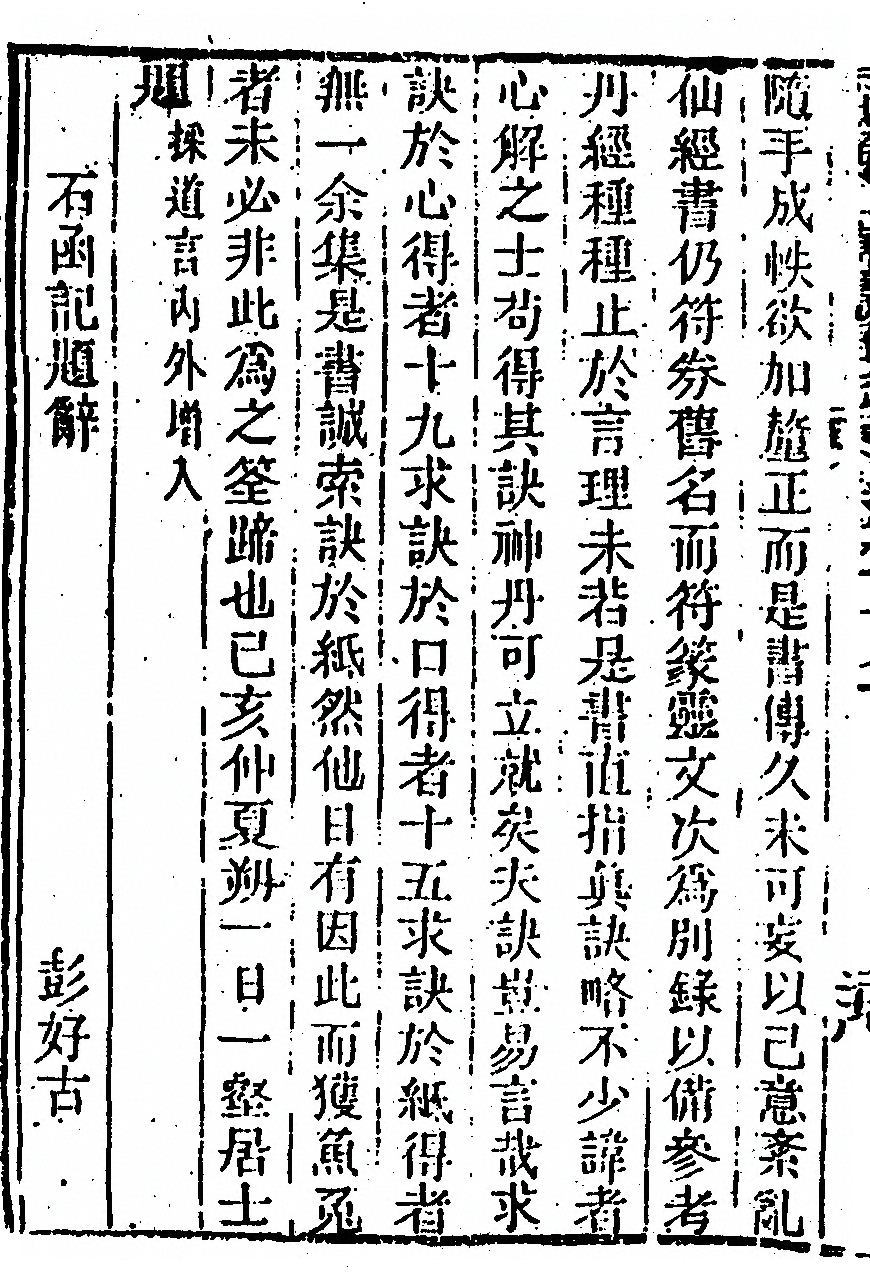 隨手成帙欲加釐正而是書傳久未可妄以己意紊亂
仙經書仍符券舊名而符篆靈文次為別錄以備參考
丹經種種止於言理未若是書直指真訣略不少諱者
心解之士苟得其訣神丹可立就矣夫訣豈易言哉求
訣於心得者十九求訣於口得者十五求訣於紙得者
無一余集是書誠索訣於紙然他日有因此而獲魚兎
者未必非此爲之筌蹄也已亥仲夏朔一日一壑居士
題
採道言內外增入
石函記題辭 彭好古